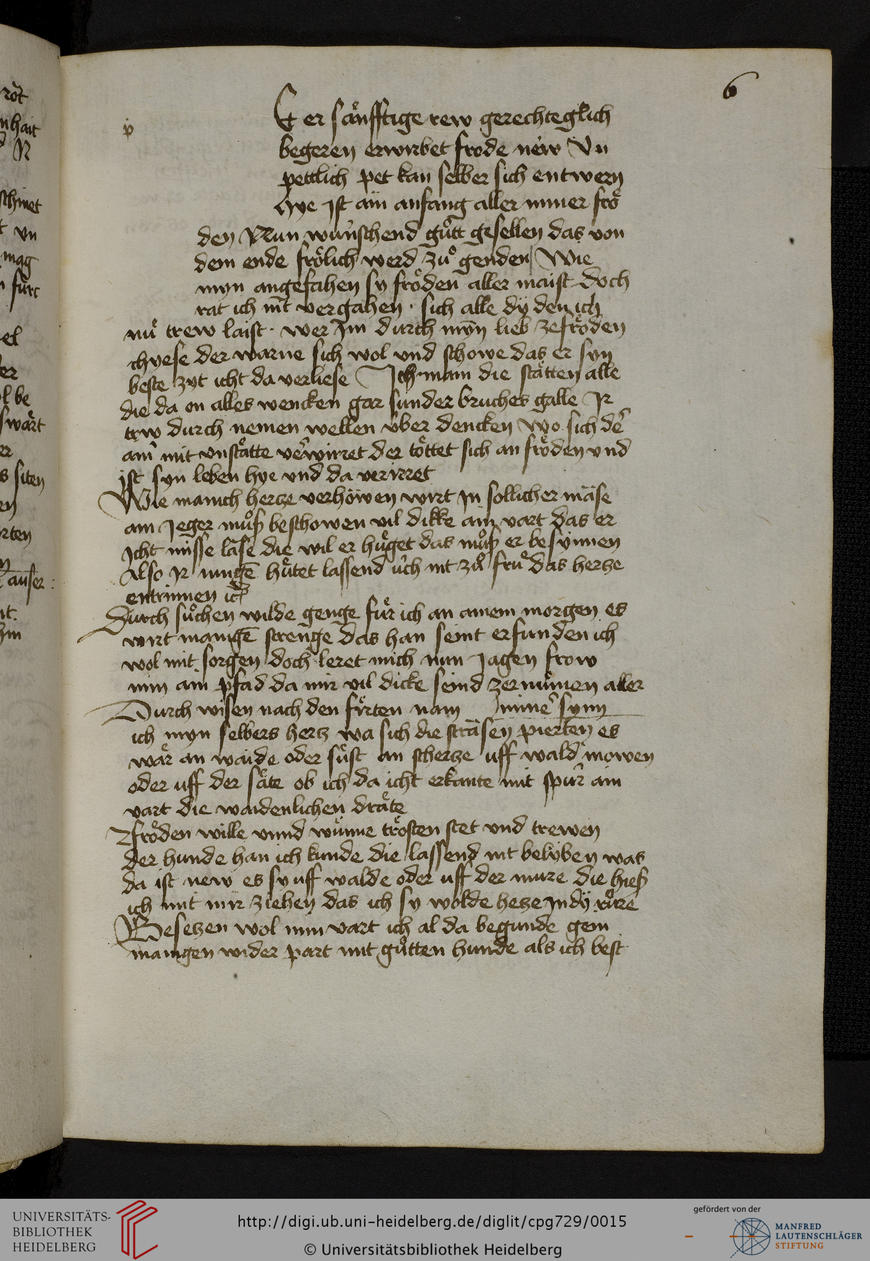 6
Et er sänfftige rew gerechteglich
begeren erwirbet frode new Un
pettlich pet kan selber sich entwern
Hye Ist ain anfang aller miner frö
den Nun wünschend gůtt gesellen das von
dem ende frölich werd zů genden Wie
myn angefahen sy fröden aller maist doch
rat ich nit vergahen · sich alle dÿ den ich
nů trew laist · wer Im durch myn lieb ze fröden
chuese der warne sich wol vnd schowe das er syn
beste zyt icht da verliese Ich main die stätten alle
die da on alles wencken gar sunder bruches galle Ir
trw durch nemen wellen über dencken Wo sich der
ain mit vnstätte verwirret der töttet sich an fröden vnd
ist syn leben hye vnd da verirret
Wie manich hercze verhöwen wirt In sollicher mäse
ain Jeger můß beschowen vil dikke ain vart das er
Icht misse läse die wil er hüget das můß er besynnen
Also Ir iungen hütet lassend üch nit zů frů das hercze
entrinnen
Durch sůchen wilde genge fůr ich an ainem morgen es
wirt manigē strenge das han seint erfunden ich
wol mit sorgen doch leret mich nun Jagen frow
min ain pfad da mir vil dicke seind zernümen aller
Durch wisen nach den förten nam miner synn
ich myn selbers hercz wa sich die strässen pierten es
wär an waide oder süst an schercze uff wald mowen
oder uff der säte ob ich da icht erkante mit spur ain
vart die waidenlichen dräte
fröden wille vnnd wunne trösten stet vnd trewen
der hunde han ich kunde die lassend nit belyben was
da ist new es sy uff walde oder uff der mure die hieß
ich mit mir ziehen das ich sy wolde hecze In dÿ rüre
Besetzen wol min vart ich al da begunde gem
manigen wider part mit gůtten hunde als ich best
UNIVERSITÄTS-
BIBLIOTHEK
HEIDELBERG
http://digi.ub.uni-heidelberg.de/diglit/cpg729/0015
© Universitätsbibliothek Heidelberg
gefördert von der
MANFRED
LAUTENSCHLÄGER
STIFTUNG